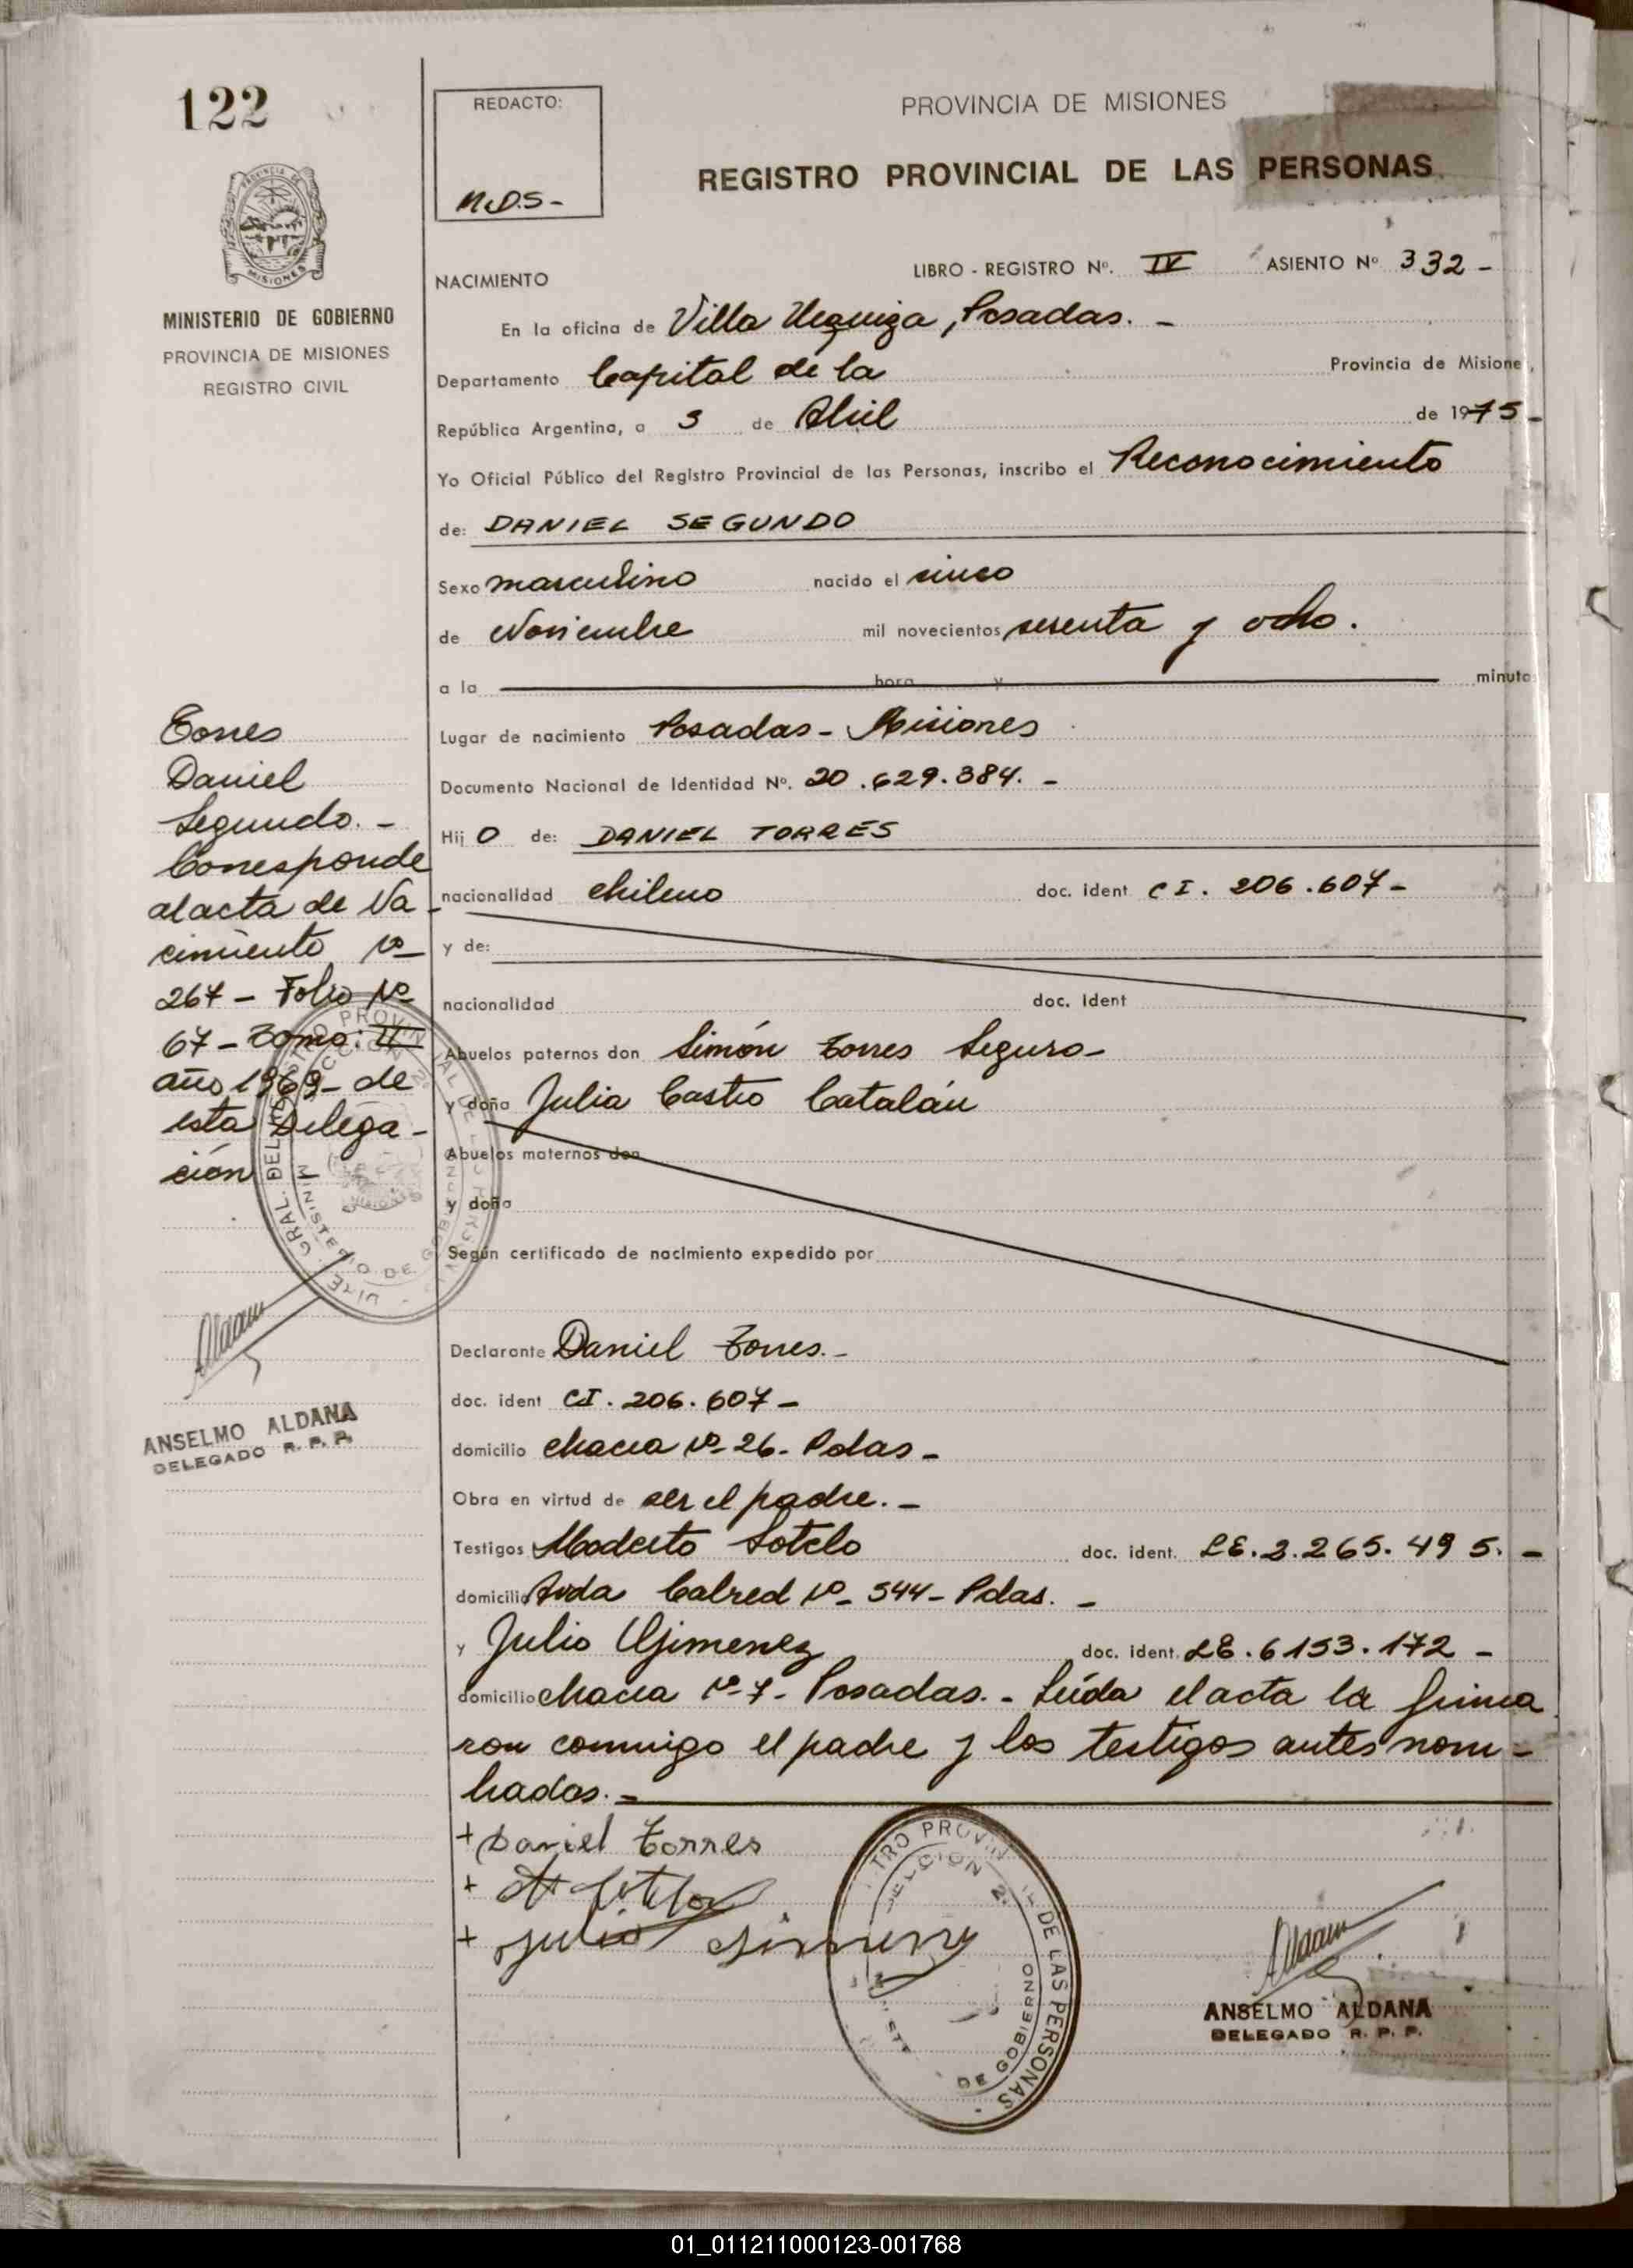 122
REDACTO:
N.D.S-
PROVINCIA DE MISIONES
REGISTRO PROVINCIAL DE LAS PERSONAS
MISIONES
MINISTERIO DE GOBIERNO
PROVINCIA DE MISIONES
REGISTRO CIVIL
NACIMIENTO
LIBRO - REGISTRO Nº. IV ASIENTO Nº 332 -
En la oficina de Villa Urquiza, Posadas. -
Departamento Capital de la Provincia de Misione,
República Argentina, a 3 de Abril de 1975-
Yo Oficial Público del Registro Provincial de las Personas, inscribo el Reconocimiento
de: DANIEL SEGUNDO
Sexo masculino nacido el cinco
de Noviembre mil novecientos sesenta y ocho.
a la hora y minuto
Lugar de nacimiento Posadas - Misiones
Documento Nacional de Identidad Nº. 20.629.384. -
Hij o de: DANIEL TORRES
nacionalidad chileno doc. ident CI. 206.607-
y de:
nacionalidad doc. ident
Abuelos paternos don Simón Torres Seguro-
y doña Julia Castro Catalán
Abuelos maternos don
y doña
Según certificado de nacimiento expedido por
Declarante Daniel Torres.-
doc. ident CI. 206.607-
domicilio chacra Nº 26- Pdas-
Obra en virtud de ser el padre. -
Testigos Modesto Sotelo doc. ident. LE. 2.265.495. -
domicilio Avda Nº 544- Pdas. -
y Julio Gimenez doc. ident. LE. 6153.172 -
domicilio chacra Nº 7- Posadas.- Leída el acta la firma
ron conmigo el padre y los testigos antes nom-
brados.-
Torres
Daniel
Segundo. -
Corresponde
al acta de Na-
cimiento Nº
267 - Folio Nº
67 - Tomo: II
año 1969- de
esta Delega-
ción
ANSELMO ALDANA
DELEGADO R. P. P.
+ Daniel Torres
+
+ Julio Gimenez
TRO PROVIN DE LAS PERSONAS
DE GOBIERNO
ANSELMO ALDANA
DELEGADO R. P. P.
01_011211000123-001768